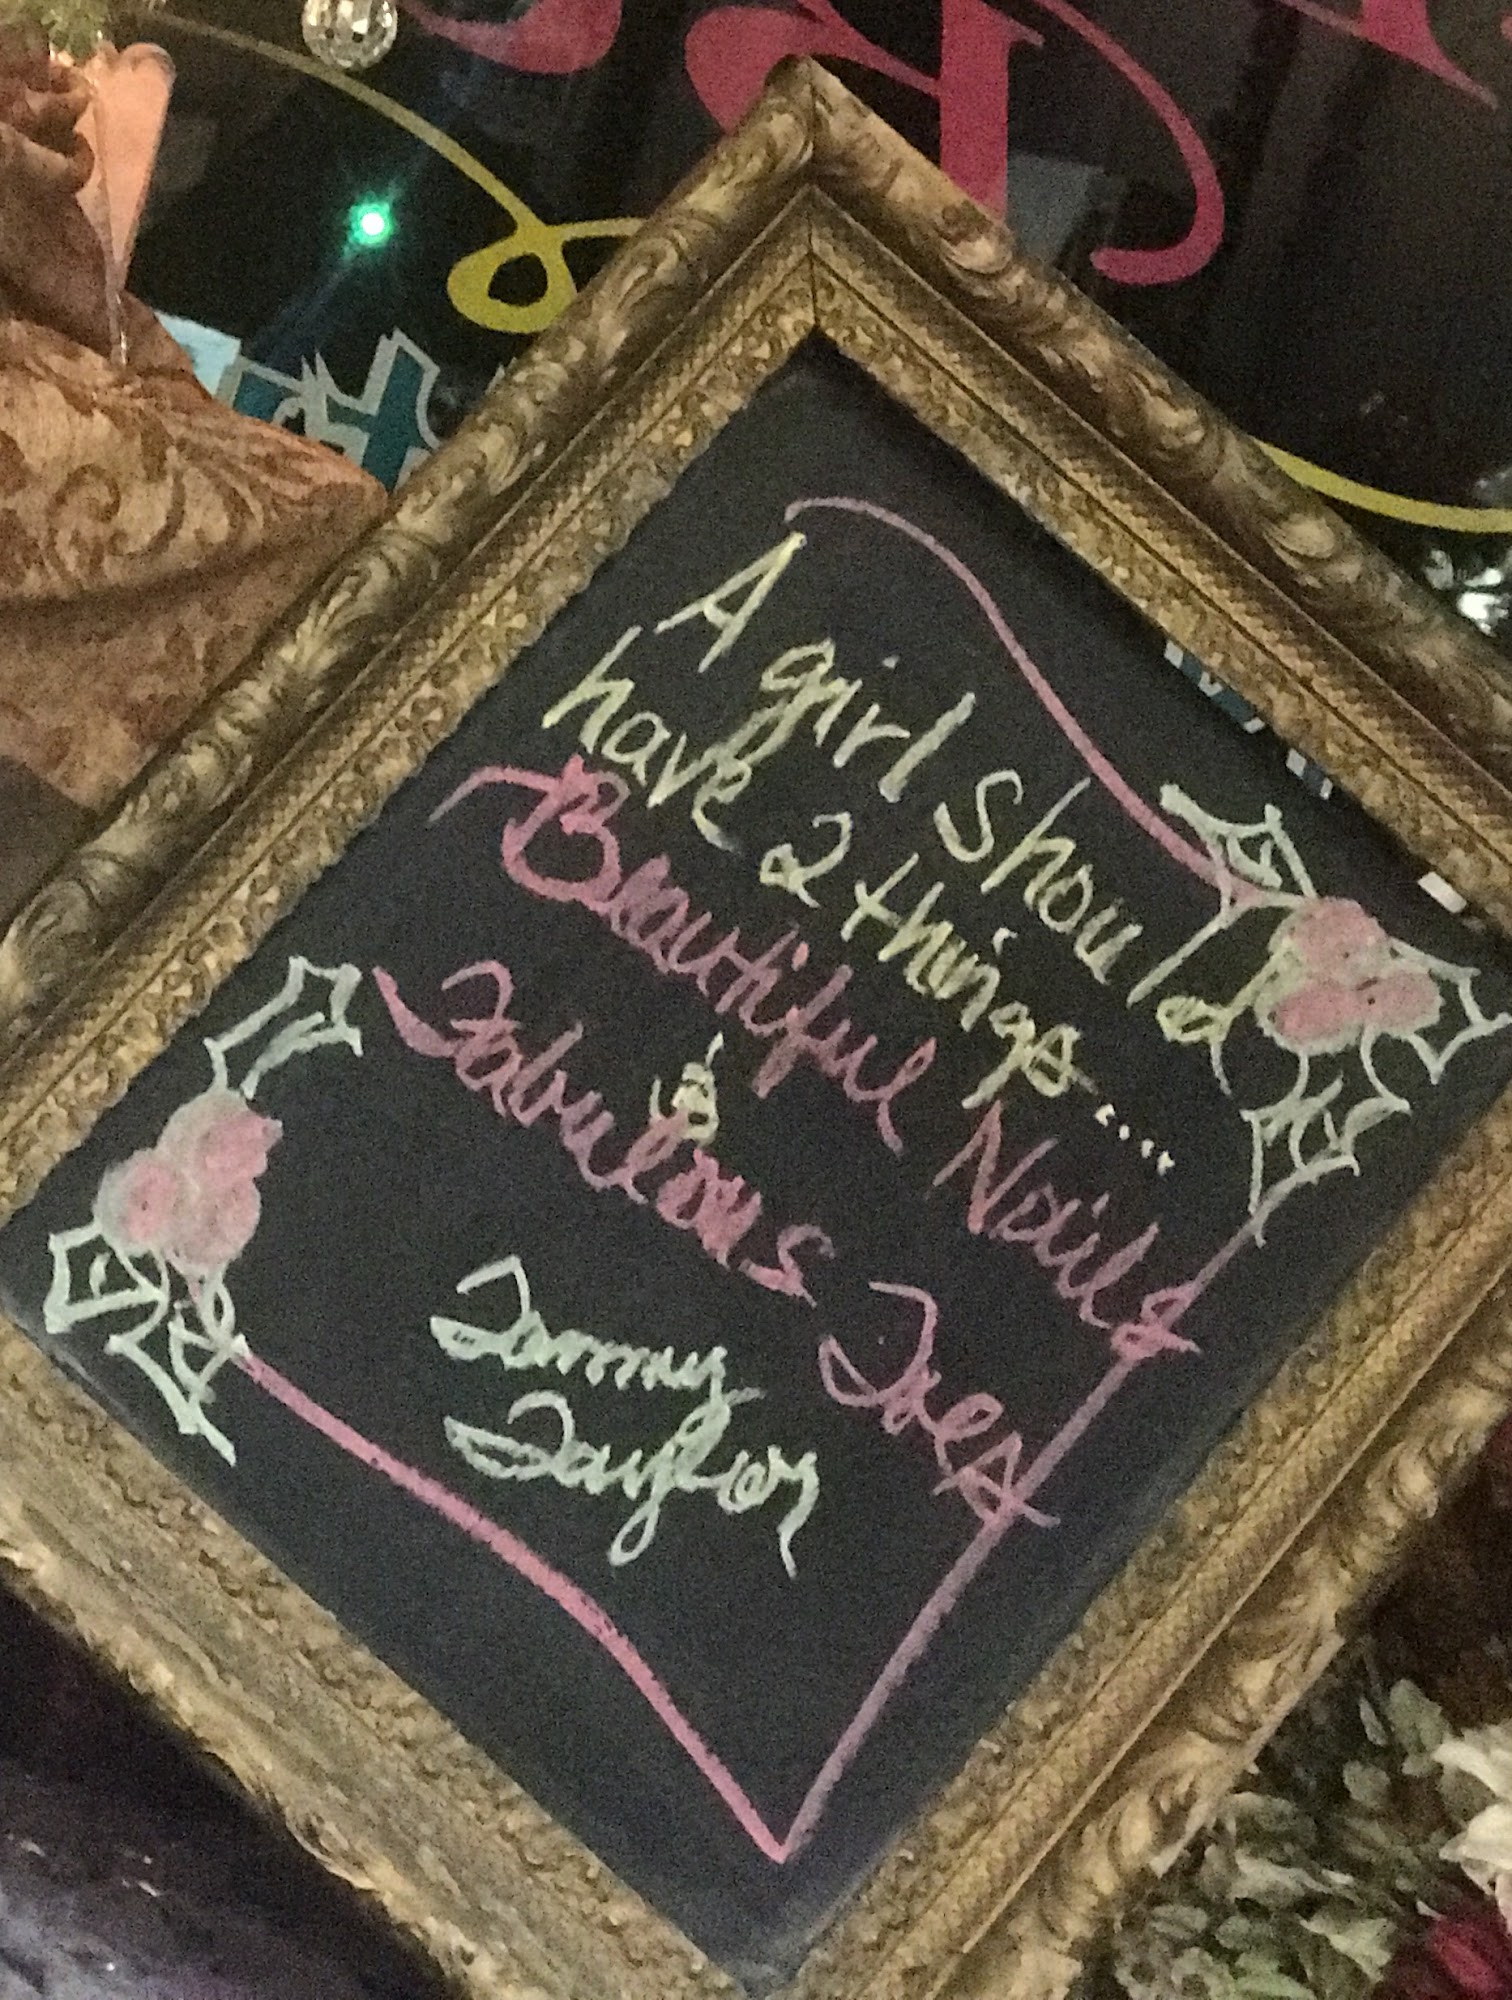 A girl should
have 2 things....
Beautiful Nails
&
Fabulous Toes
Tammy
Taylor